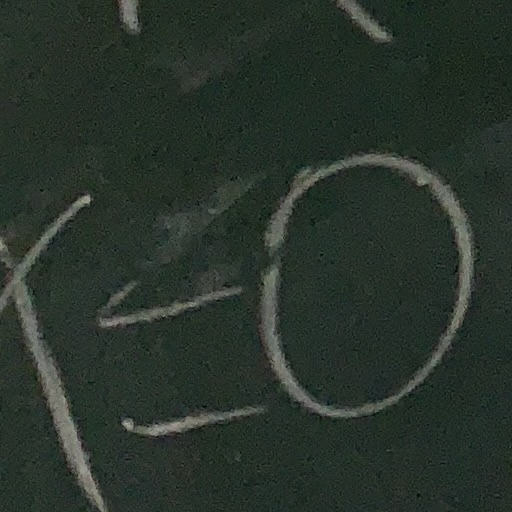 x = 0